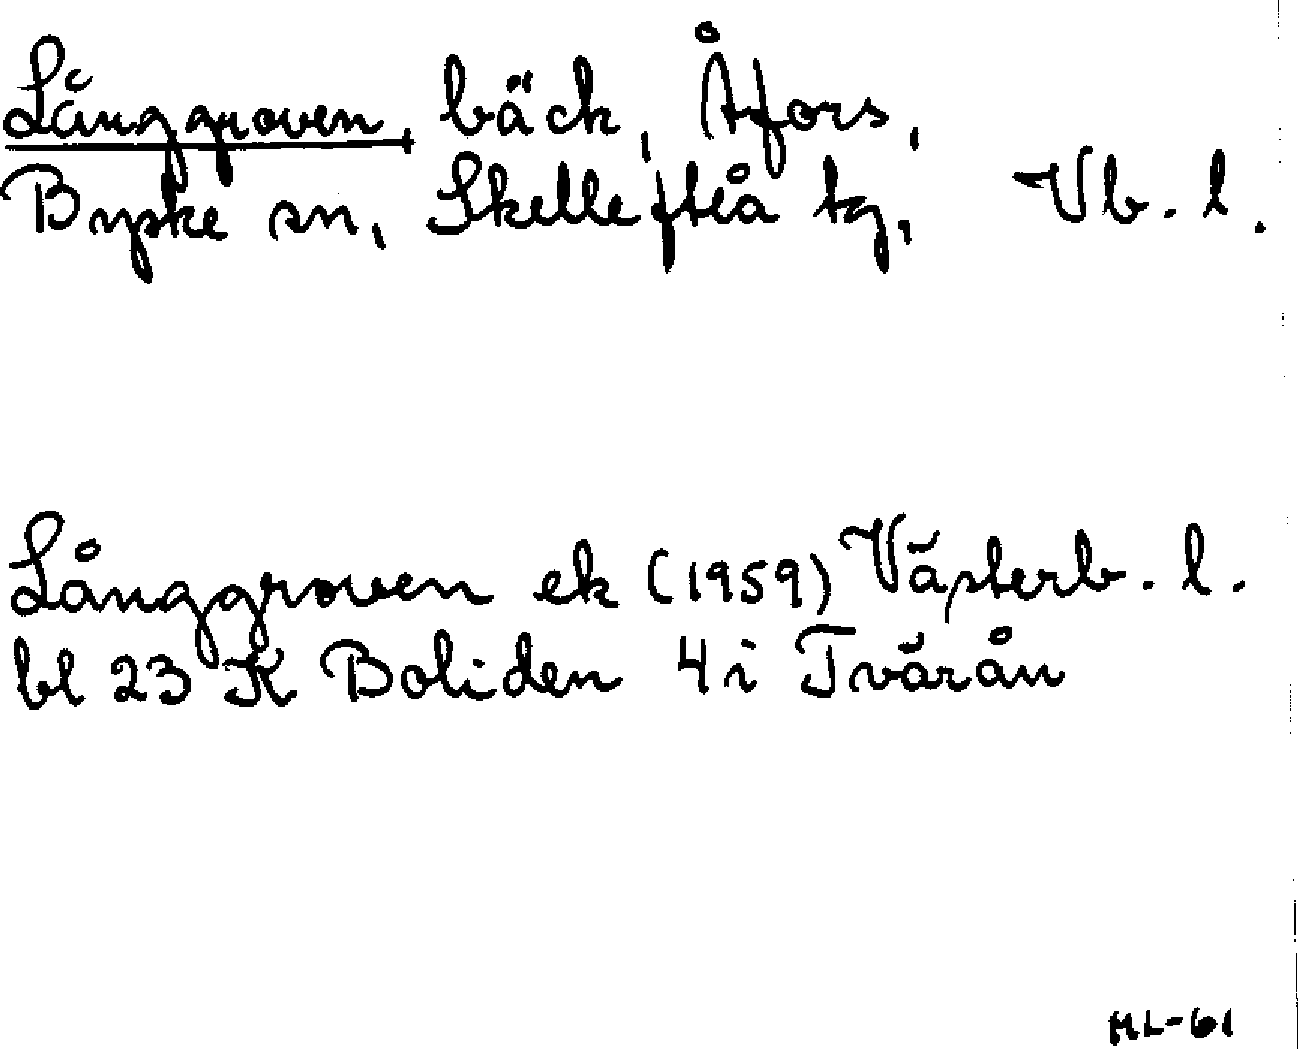 Långgroven, bäck, Åfors,
Byske sn, Skellefteå tg, Vb. l.
Långgroven ek (1959) Västerb. l.
bl 23 K Boliden 4i Tvärån
ML-61